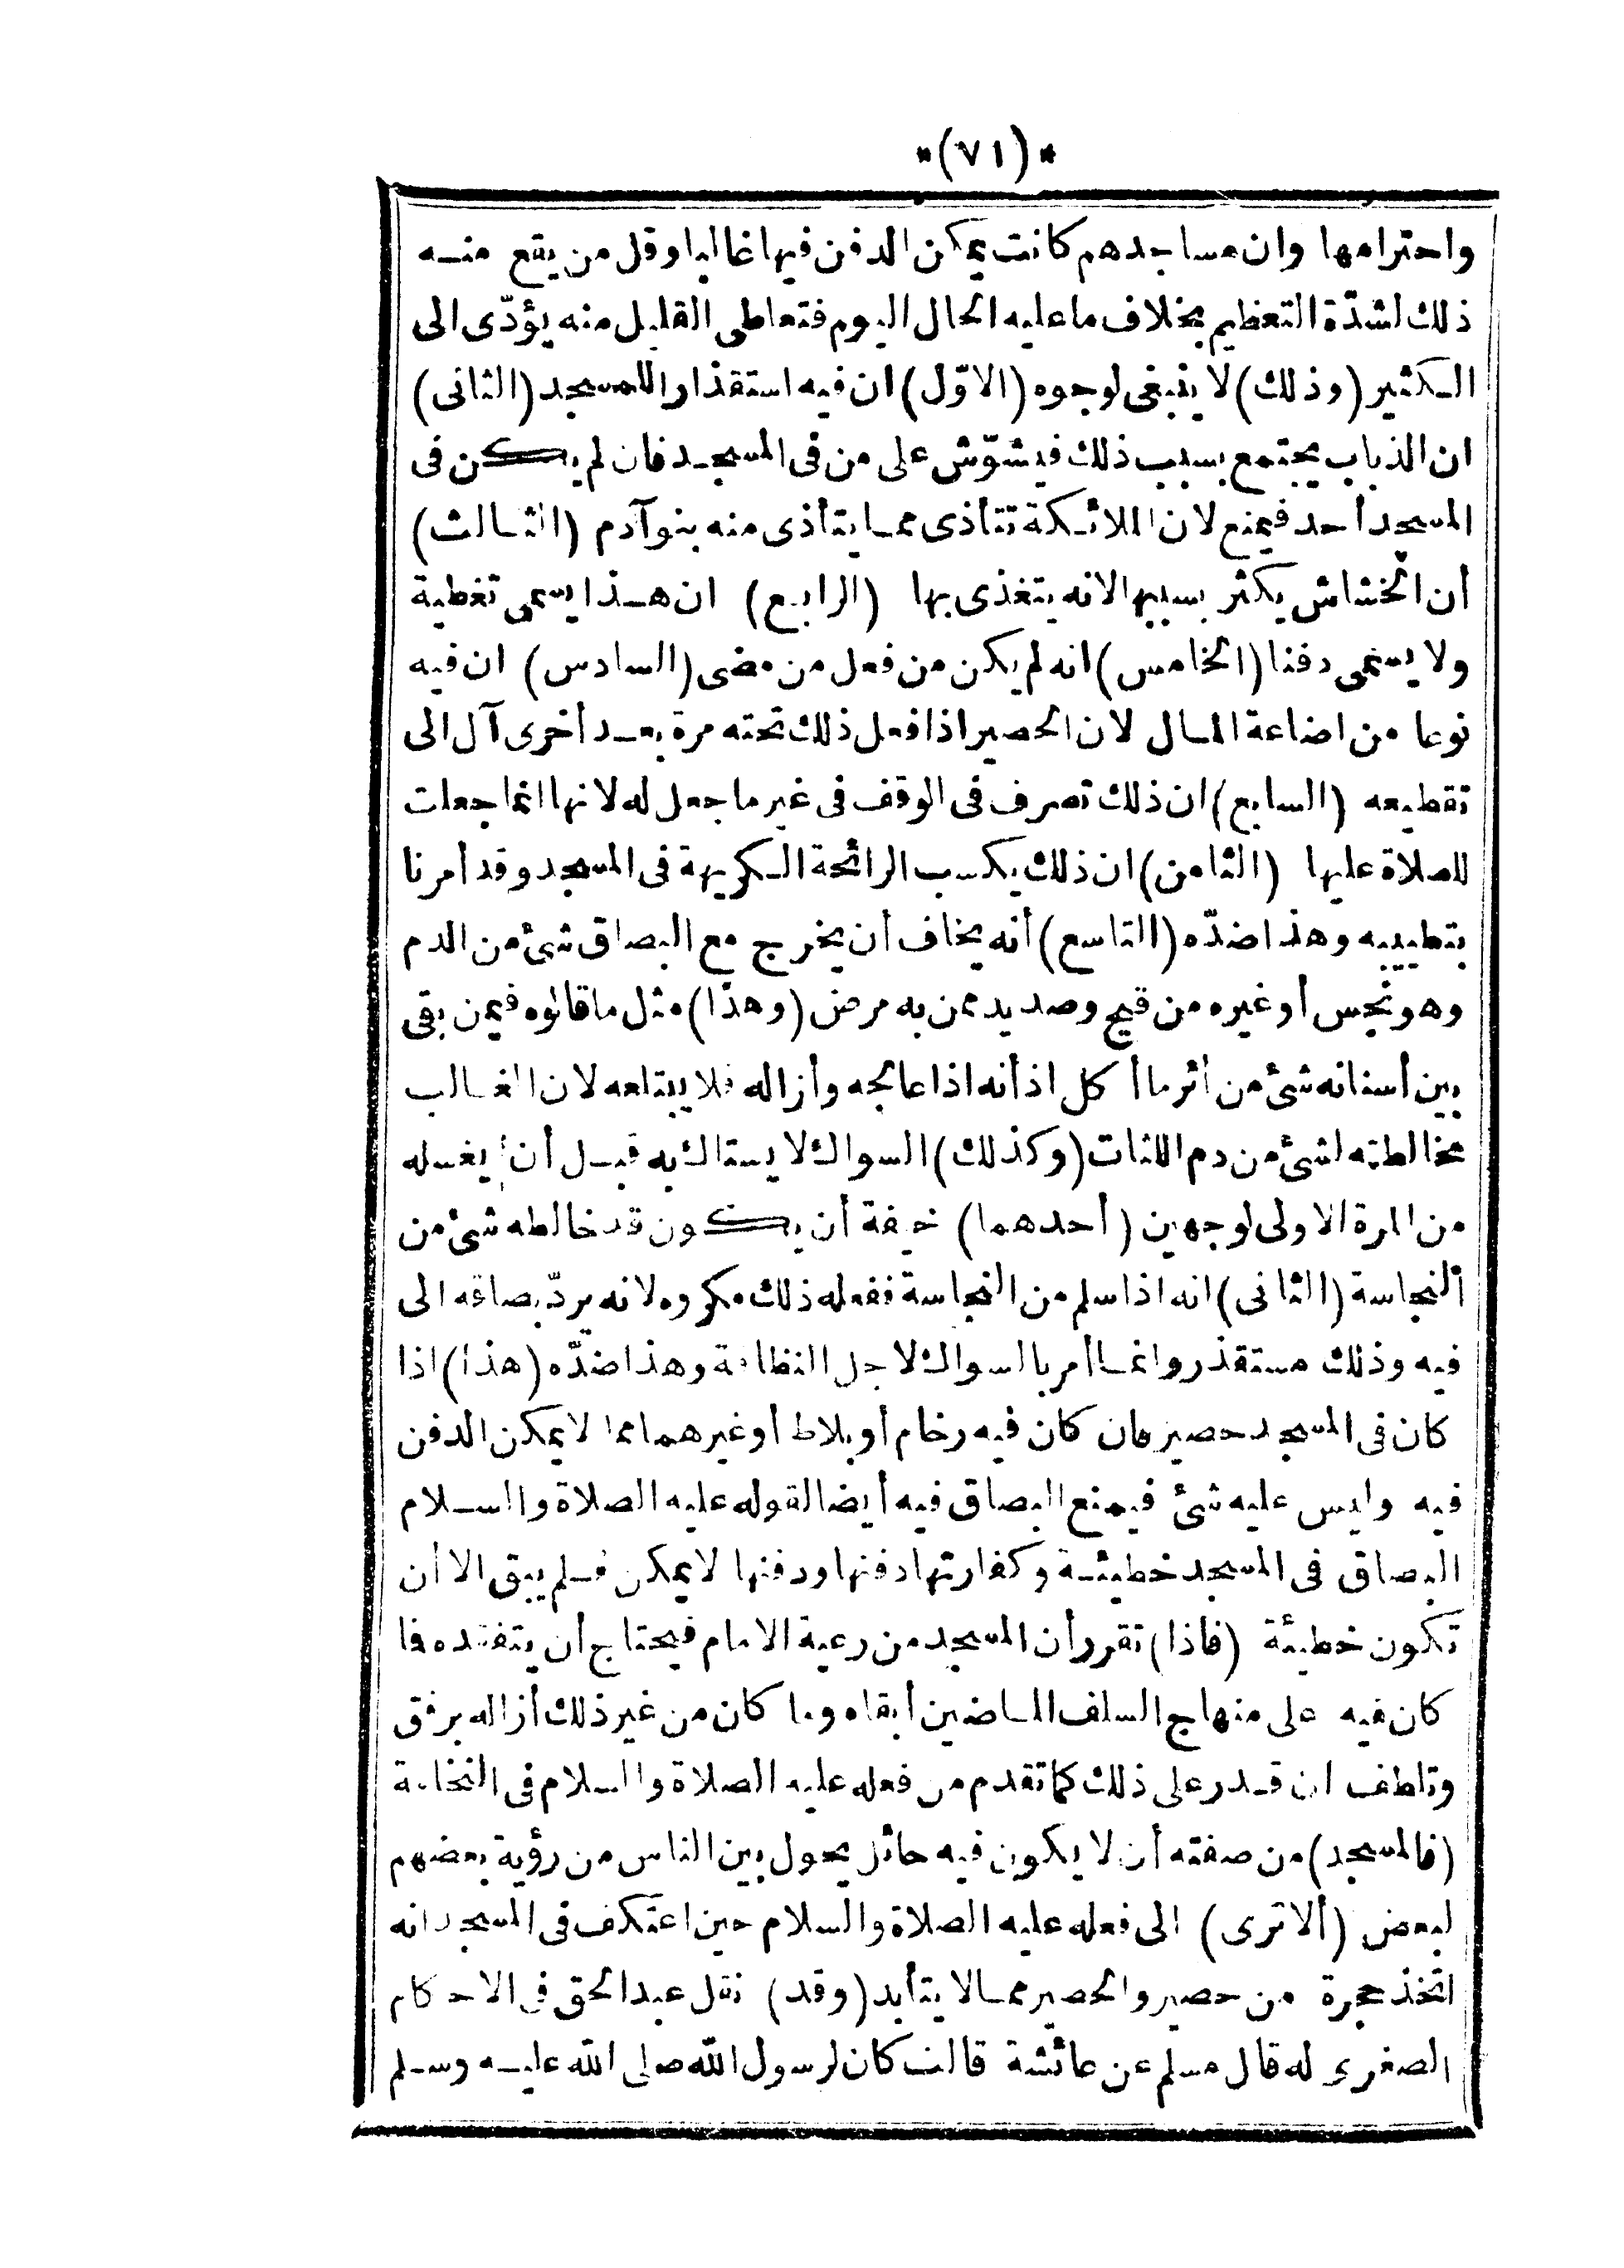 *(٧١)*
واحترامها وان مساجدهم كانت يمكن الدفن فيها غالبا وقل من يقع منه
ذلك لشدّة التعظيم بخلاف ما عليه الحال اليوم فتعاطى القليل منه يؤدّى الى
الكثير (وذلك) لا ينبغى لوجوه (الاوّل) ان فيه استقذارا للمسجد (الثانى)
ان الذباب يجتمع بسبب ذلك فيشوّش على من فى المسجد فان لم يكن فى
المسجد أحد فيمنع لان الملائكة تتأذى مما يتأذى منه بنو آدم (الثالث)
أن الخشاش يكثر بسببها لانه يتغذى بها (الرابع) ان هذا يسمى تغطية
ولا يسمى دفنا (الخامس) انه لم يكن من فعل من مضى (السادس) ان فيه
نوعا من اضاعة المال لان الحصير اذا فعل ذلك تحته مرة بعد أخرى آل الى
تقطيعه (السابع) ان ذلك تصرف فى الوقف فى غير ما جعل له لانها انما جعلت
للصلاة عليها (الثامن) ان ذلك يكسب الرائحة الكريهة فى المسجد وقد أمرنا
بتطييبه وهذا ضدّه (التاسع) أنه يخاف أن يخرج مع البصاق شئ من الدم
وهو نجس أو غيره من قيح وصديد ممن به مرض (وهذا) مثل ما قالوه فيمن بقى
بين أسنانه شئ من أثر ما أكل اذ أنه اذا عالجه وأزاله فلا يبتلعه لان الغالب
مخالطته لشئ من دم اللثات (وكذلك) السواك لا يستاك به قبل أن يغسله
من المرة الاولى لوجهين (أحدهما) خيفة أن يكون قد خالطه شئ من
النجاسة (الثانى) انه اذا سلم من النجاسة ففعله ذلك مكروه لانه يردّ بصاقه الى
فيه وذلك مستقذر وانما أمر بالسواك لاجل النظافة وهذا ضدّه (هذا) اذا
كان فى المسجد حصير فان كان فيه رخام أو بلاط أو غيرهما مما لا يمكن الدفن
فيه وليس عليه شئ فيمنع البصاق فيه أيضا لقوله عليه الصلاة والسلام
البصاق فى المسجد خطيئة وكفارتها دفنها ودفنها لا يمكن فلم يبق الا أن
تكون خطيئة (فاذا) تقرر أن المسجد من رعية الامام فيحتاج أن يتفقده فا
كان فيه على منهاج السلف الماضين أبقاه وما كان من غير ذلك أزاله برفق
وتلطف ان قدر على ذلك كما تقدم من فعله عليه الصلاة والسلام فى النخامة
(فالمسجد) من صفته أن لا يكون فيه حائل يحول بين الناس من رؤية بعضهم
لبعض (ألا ترى) الى فعله عليه الصلاة والسلام حين اعتكف فى المسجد انه
اتخذ حجرة من حصير والحصير مما لا يتأبد (وقد) نقل عبد الحق فى الاحكام
الصغرى له قال مسلم عن عائشة قالت كان لرسول الله صلى الله عليه وسلم